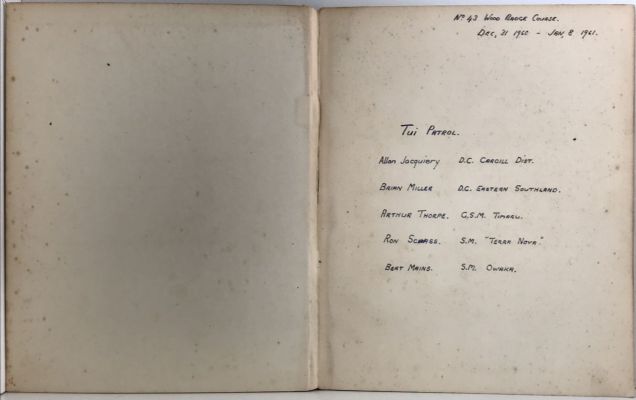 No 43 Wood Badge Course.
Dec, 21 1960 - Jan, 8 1961.
Tui Patrol.
Allan Jacquiery D.C. Cargill Dist.
Brian Miller D.C. Eastern Southland.
Arthur Thorpe. G.S.M. Timaru.
Ron S.M. "Terra Nova".
Bert Mains. S.M. Owaka.